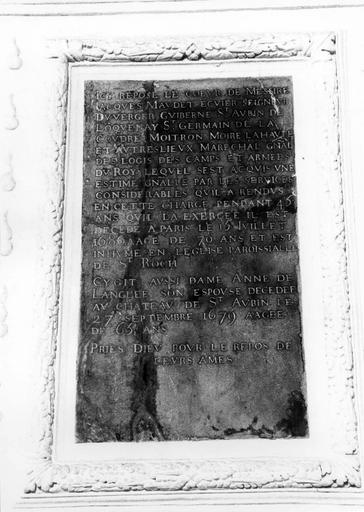 ICY REPOSE LE COEVR DE MESSIRE
IACQVES MAVDET ECVIER SEIGNEVR
DV VERGER GVIBERNE ST AVBIN DE
LOQVENAY ST GERMAIN DE LA
COVDRE MOITRON MOIRE LAHAVTE
ET AVTRES LIEVX MARECHAL GNAL
DES LOGIS DES CAMPS ET ARMEES
DV ROY LEQVEL SEST ACQVIS VNE
ESTIME GNALLE PAR LES SERVICES
CONSIDERABLES QVIL A RENDVS
EN CETTE CHARGE PENDANT 45
ANS QVIL LA EXERCEE IL EST
DECEDE A PARIS LE 15 IVILLET
1686 AAGE DE 70 ANS ET EST
INHVME EN LEGLISE PAROISSIALLE
DE ROCH
CY GIT AVSSI DAME ANNE DE
LANGLEE SON ESPOVSE DECEDEE
AV CHATEAV DE ST AVBIN LE
27 SEPTEMBRE 1679 AAGEE
DE 65 ANS
PRIES DIEV POVR LE REPOS DE
LEVRS AMES